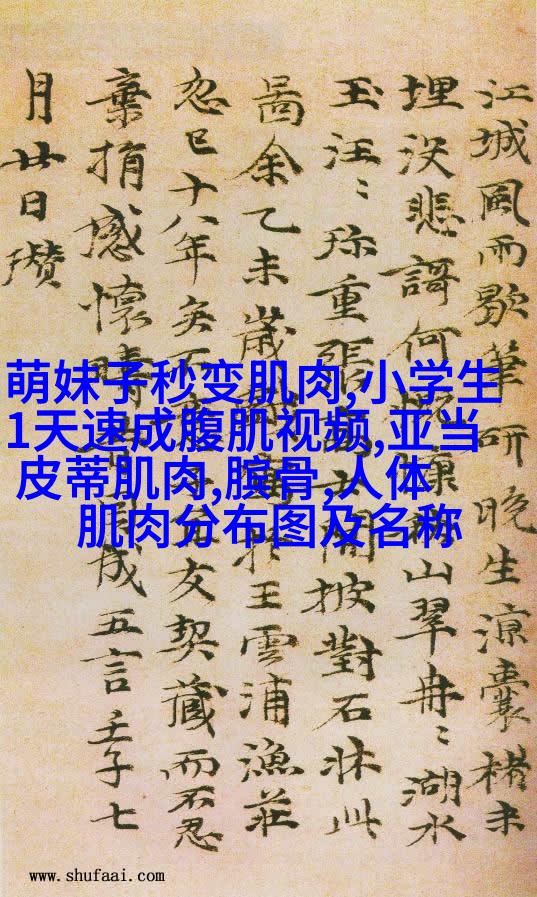 江城風雨歇筆研晚生涼囊楮未
埋沒悲謌何慷山翠冉〻湖水
玉汪〻珎重張士閒披對石牀此
啚余乙未歲於王雲浦漁莊
忽已十八年矣不友契藏而不忍
棄捐感懷疇成五言壬子七
月廿日瓚
萌妹子秒变肌肉,小学生
1天速成腹肌视频,亚当
皮蒂肌肉,膑骨,人体
肌肉分布图及名称
www.shufaai.com